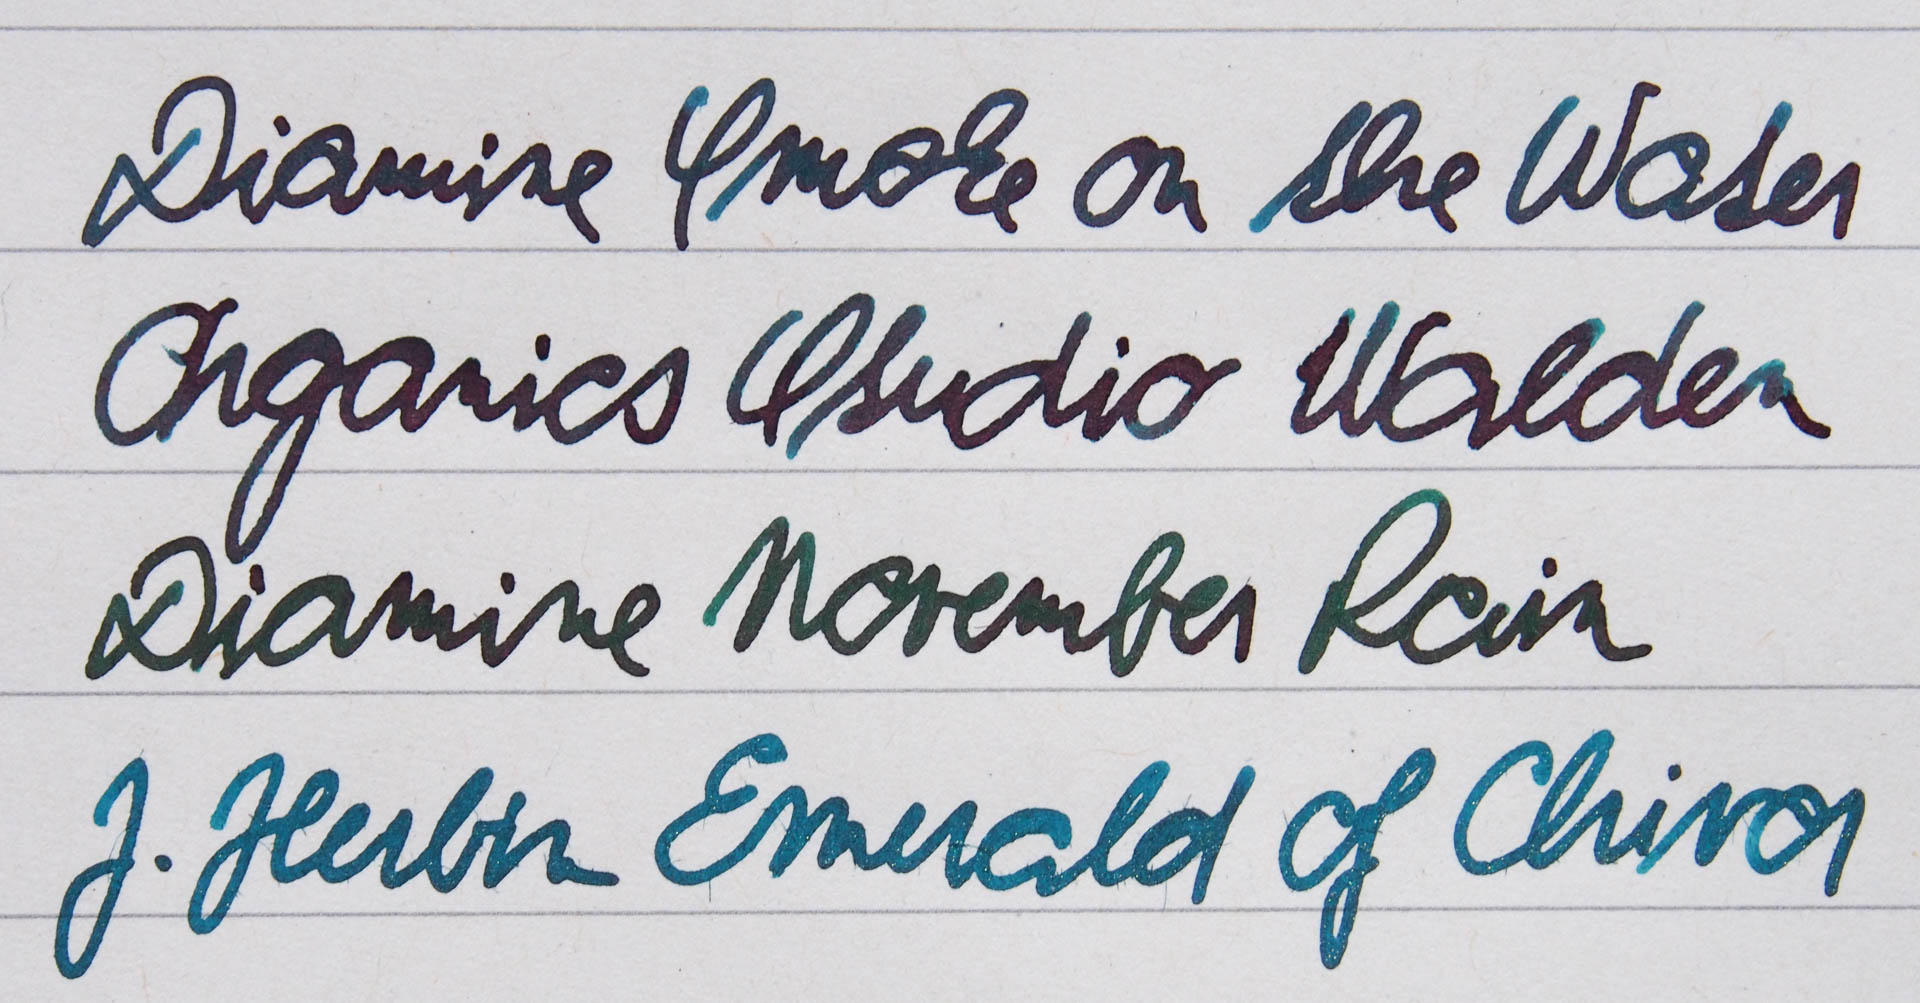 Diamine Smoke on the Water
Organics Studio Walden
Diamine November Rain
J. Herbin Emerald of Chivor